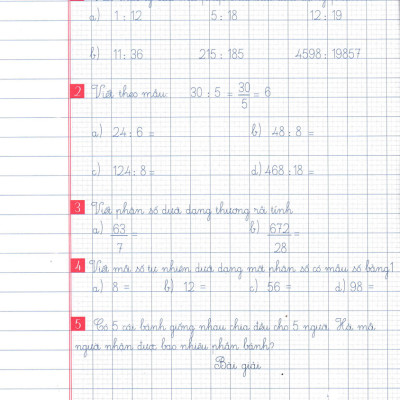 a) 1 : 12 5 : 18 12 : 19
b) 11 : 36 215 : 185 4598 : 19857
2 Viết theo mẫu: 30 : 5 = 30/5 = 6
a) 24 : 6 = b) 48 : 8 =
c) 124 : 8 = d) 468 : 18 =
3 Viết phân số dưới dạng thương rồi tính
a) 63/7 = b) 672/28 =
4 Viết mỗi số tự nhiên dưới dạng một phân số có mẫu số bằng 1
a) 8 = b) 12 = c) 56 = d) 98 =
5 Có 5 cái bánh giống nhau chia đều cho 5 người. Hỏi mỗi
người nhận được bao nhiêu phần bánh?
Bài giải